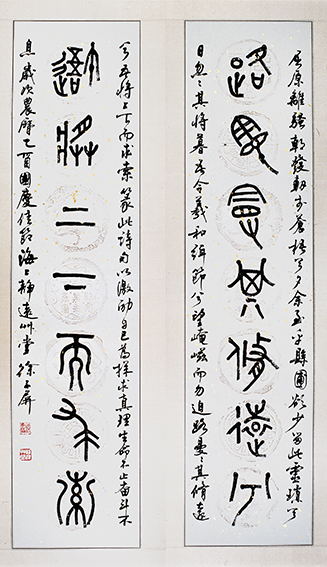 屈原離騷朝發軔於蒼梧兮夕余至乎縣圃欲少留此靈瑣兮
路曼曼其脩遠兮
日忽忽其將暮吾令羲和弭節兮望崦嵫而勿迫路曼曼其脩遠
兮吾將上下而求索篆此詩句以激勵自己為探求真理生命不止奮斗不
吾將二一而求索
息歲次農曆乙酉國慶佳節海上靜遠艸堂徐上屏